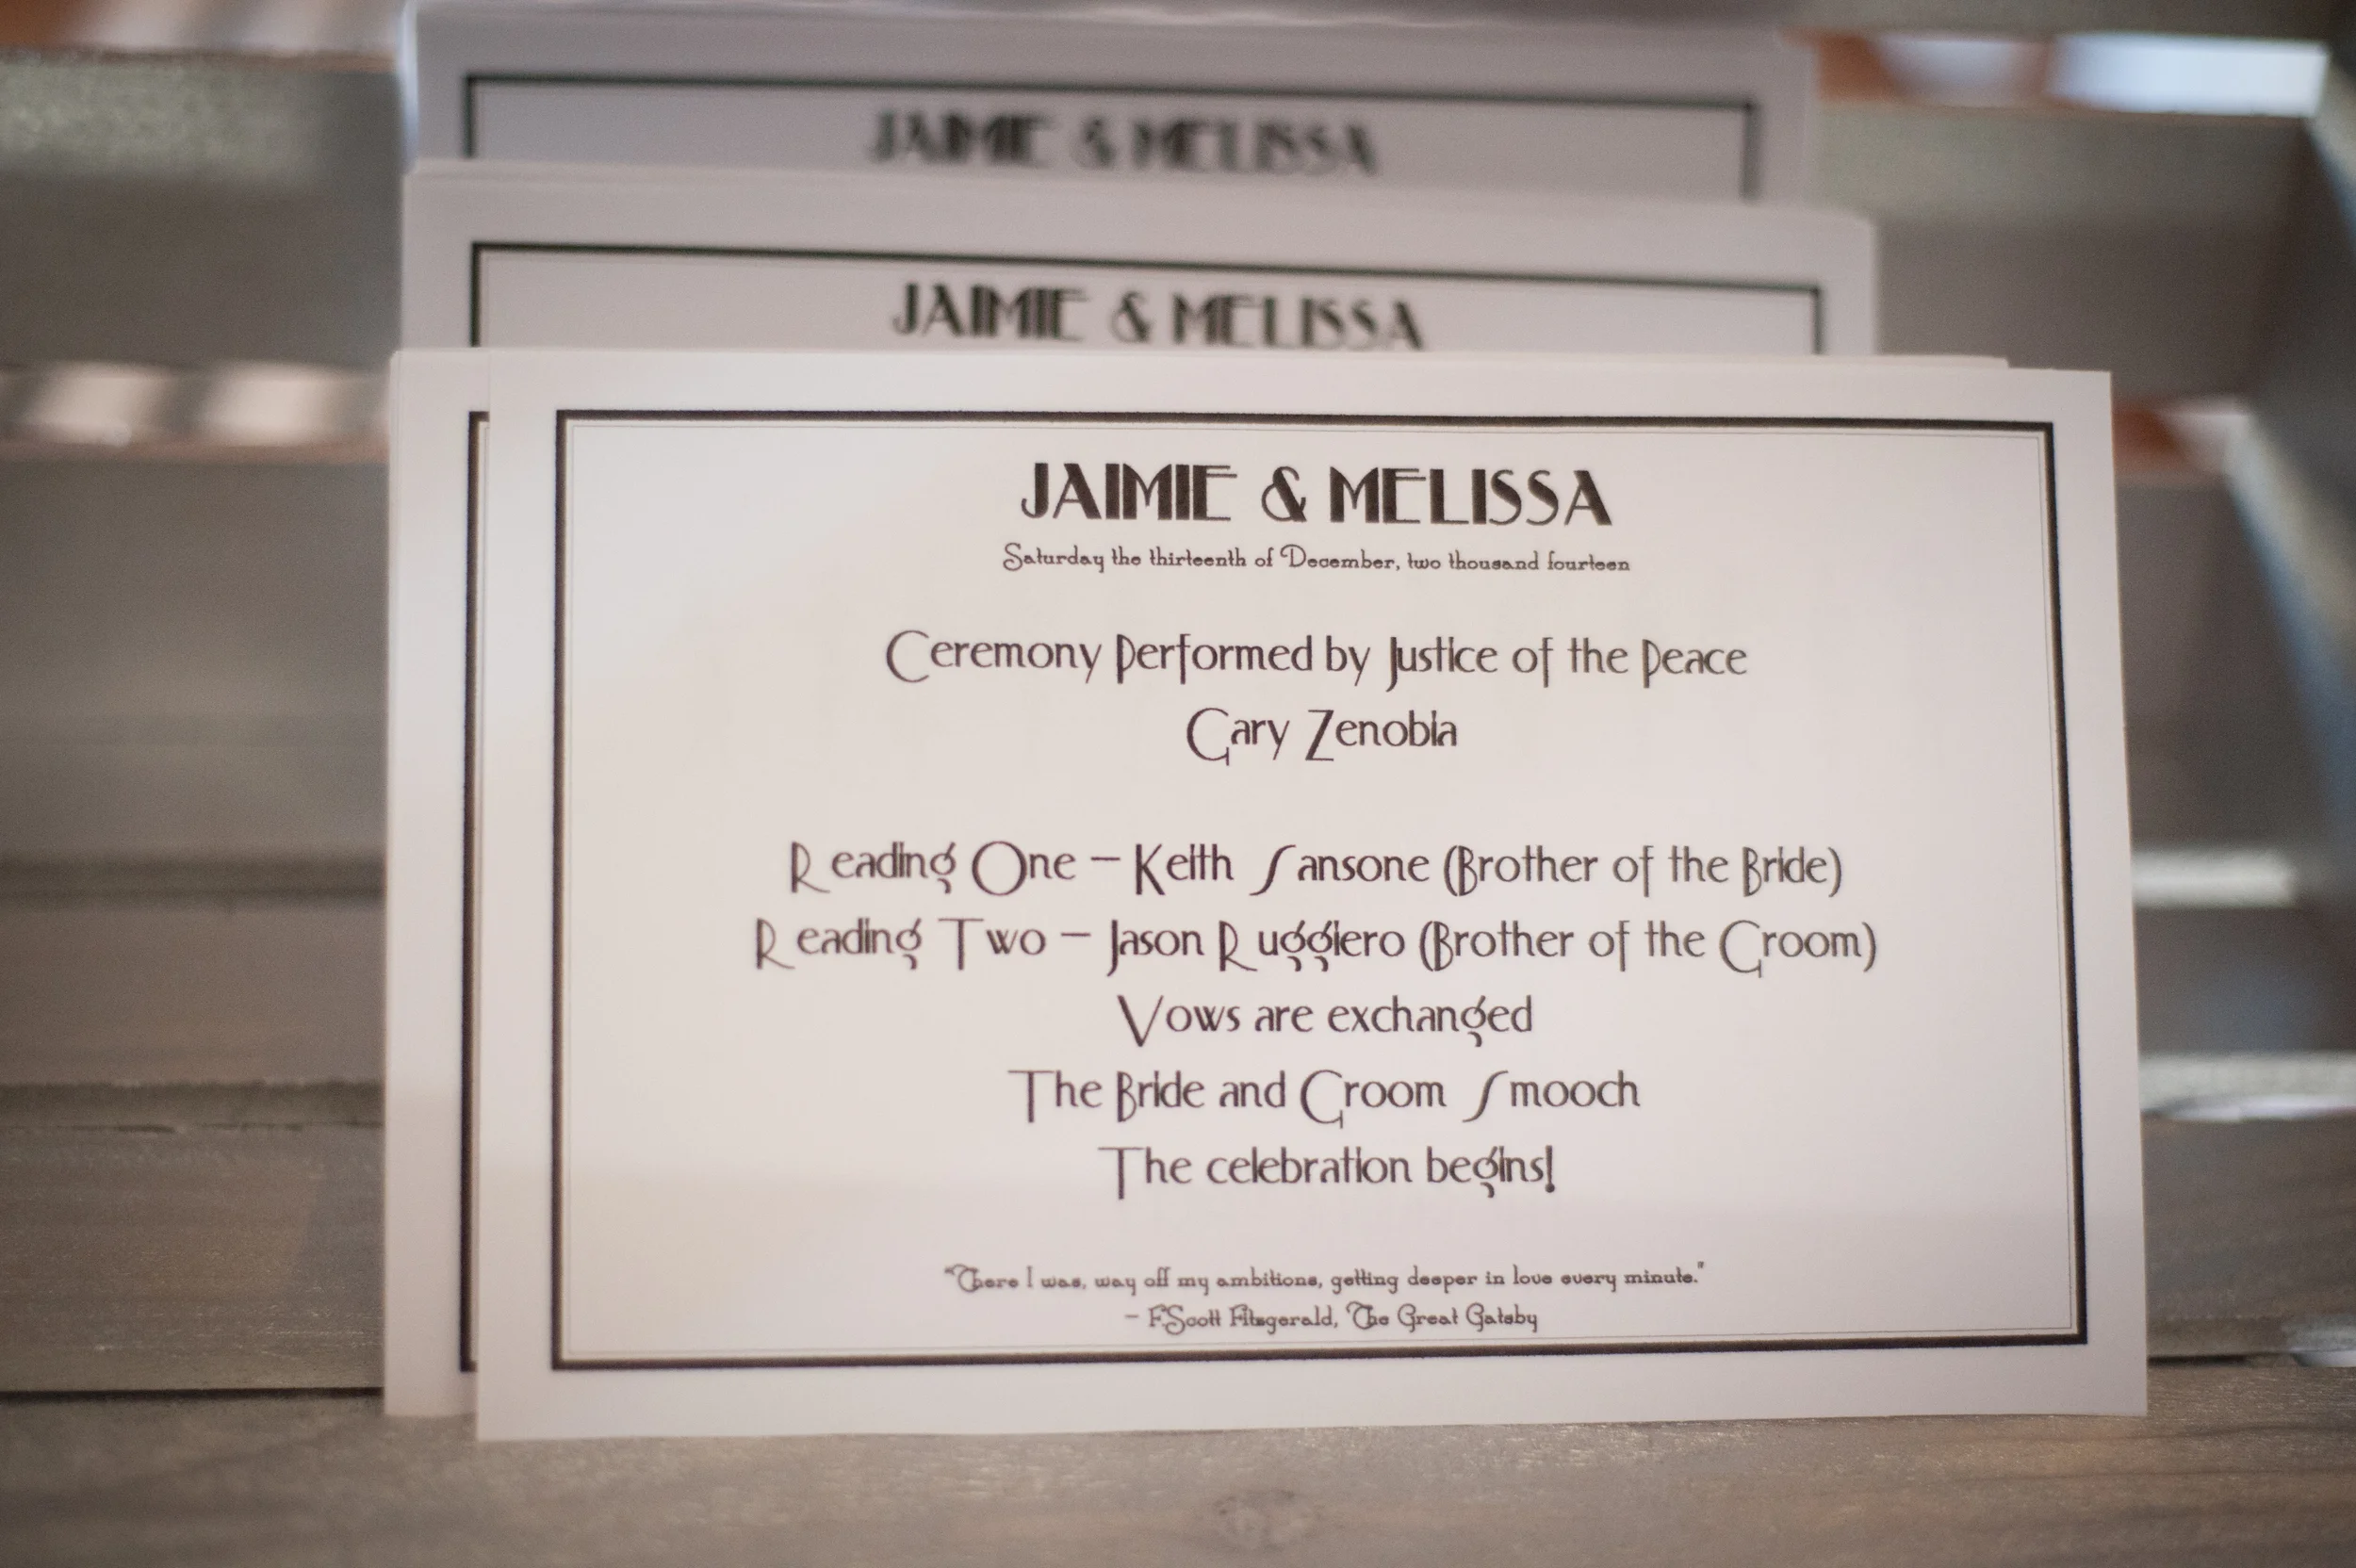 JAIMIE & MELISSA
JAIMIE & MELISSA
JAIMIE & MELISSA
Saturday the thirteenth of December, two thousand fourteen
Ceremony Performed by Justice of the Peace
Gary Zenobia
Reading One – Keith Sansone (Brother of the Bride)
Reading Two – Jason Ruggiero (Brother of the Groom)
Vows are exchanged
The Bride and Groom Smooch
The celebration begins!
"There I was, way off my ambitions, getting deeper in love every minute."
– F.Scott Fitzgerald, The Great Gatsby